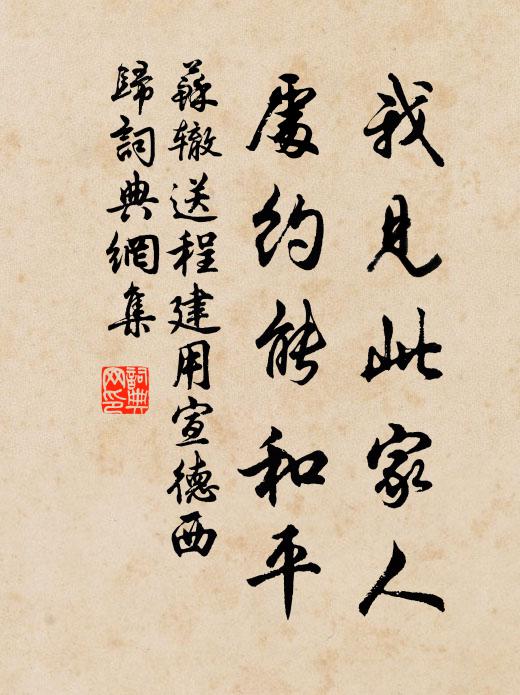 我见此家人
處约能和平
蘇辙送程建用宣德西
歸詞典網集
詞典
网印